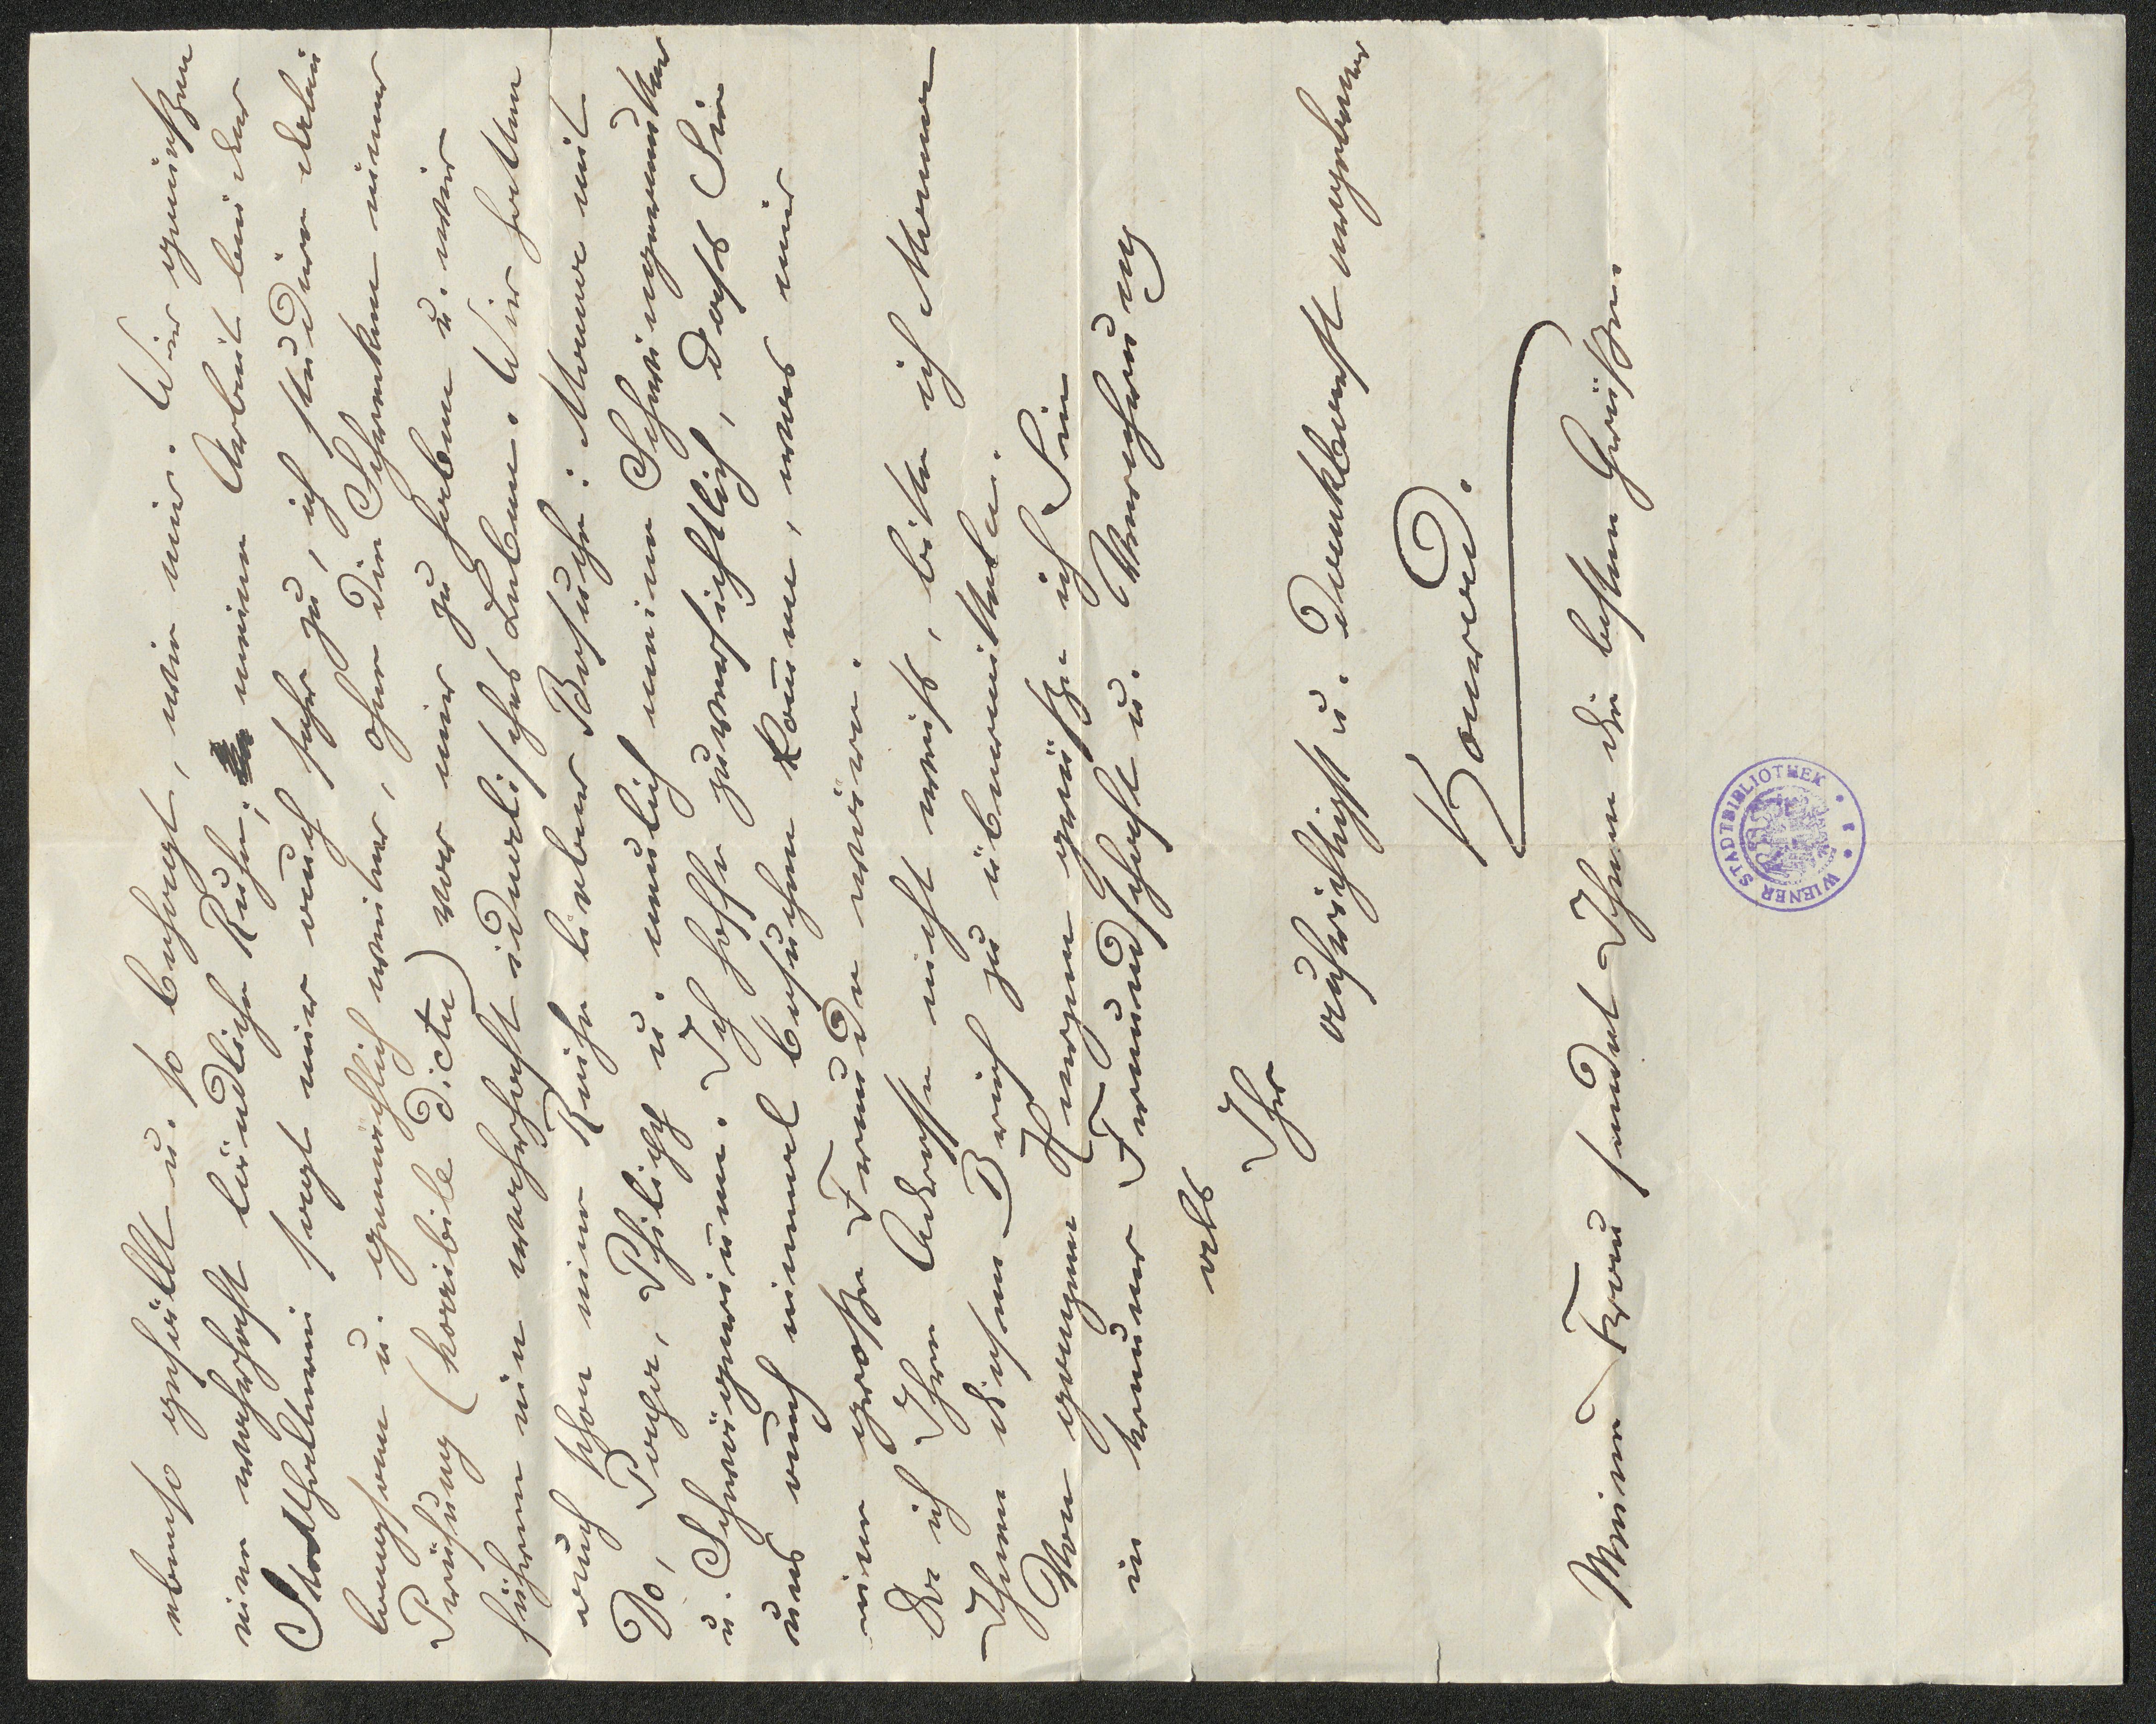 ebenso gefällt u. so behagt, wie mir. Wir genießen
eine wahrhaft ländliche Ruhe; meine Arbeit bei der
Statthalterei sagt mir auch sehr zu, ich studiere dabei
langsam u. gemächlich weiter, ohne die Schranken einer
Prüfung (horribile dictu) vor mir zu haben u. wir
führen ein wahrhaft idyllisches Leben. Wir hatten
auch schon eine Reihe lieber Besuche: Mama mit
Do, Papa, Philipp u. neulich meine Schwiegermutter
u. Schwägerinen. Ich hoffe zuversichtlich, dass Sie
uns auch einmal besuchen komen, was mir
eine große Freude wäre.
Da ich Ihre Adresse nicht weiß, bitte ich Mama
Ihnen diesen Brief zu übermitteln.
Von ganzem Herzen grüße ich Sie
in treuer Freundschaft u. Verehrung
als
Ihr
aufrichtigst u. dankbarst ergebener
Konrad.
Meine Frau sendet Ihnen die besten Grüße.
WIENER STADTBIBLIOTHEK